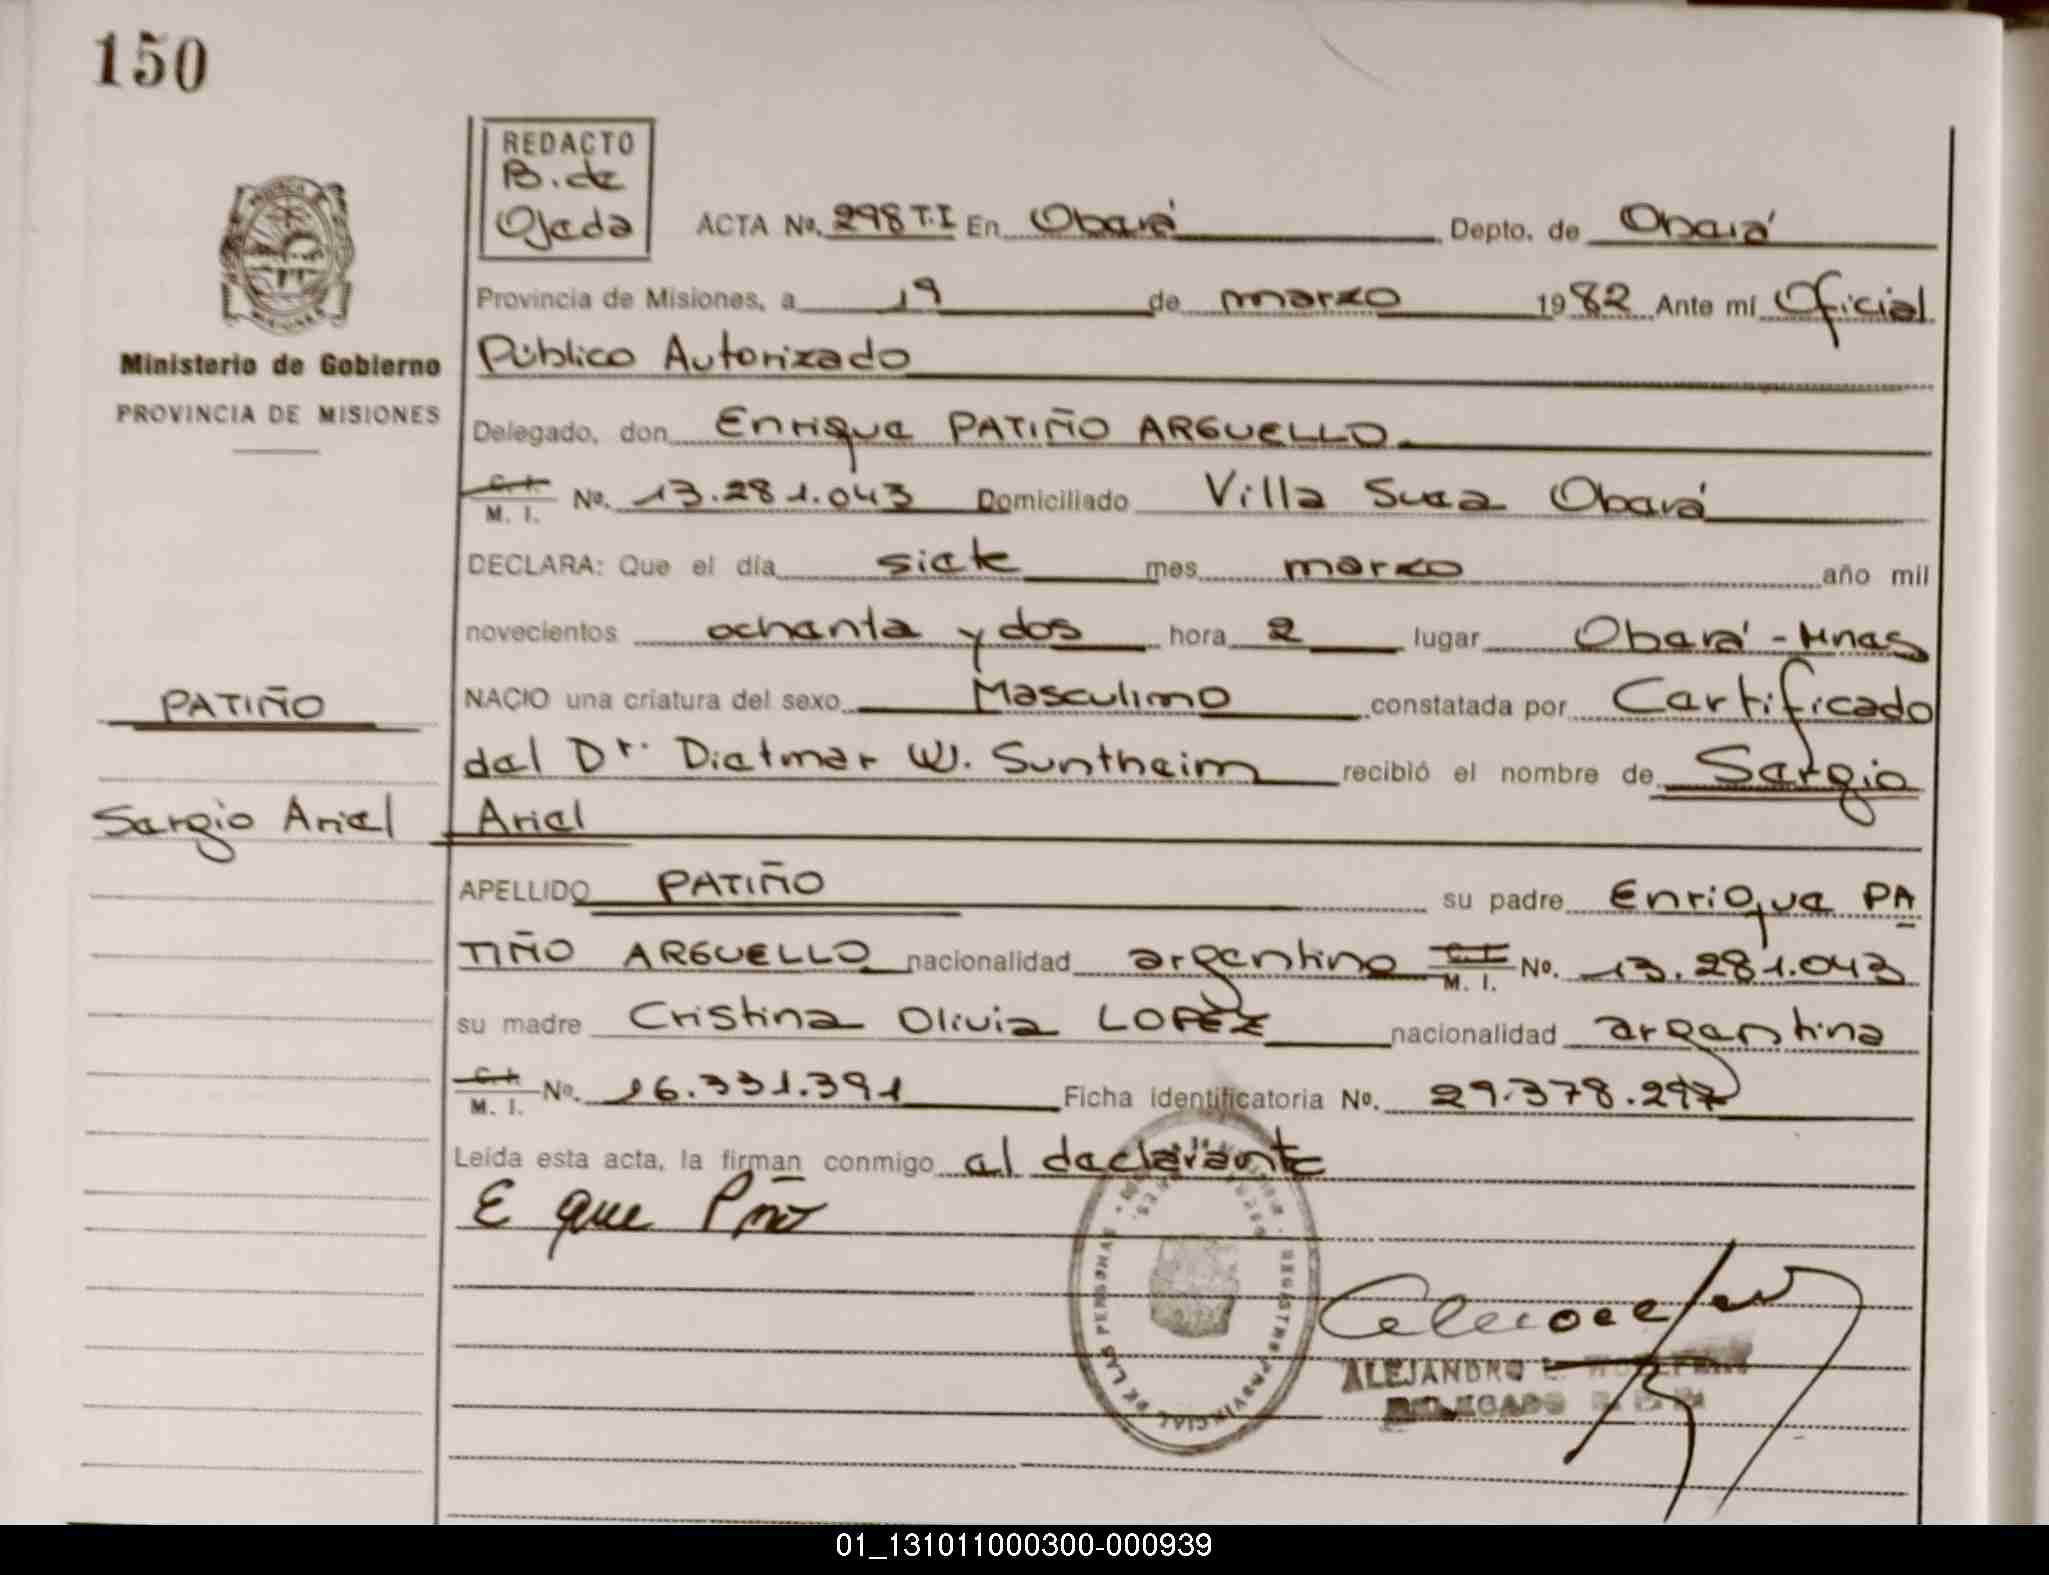 150
REDACTO
B. de
Ojeda
ACTA No. 298 T.I En Oberá Depto. de Oberá
Provincia de Misiones, a 19 de marzo 1982 Ante mí Oficial
Ministerio de Gobierno
Público Autorizado
PROVINCIA DE MISIONES
Delegado, don Enrique PATIÑO ARGUELLO
C. I. M. I. No. 13.281.043 Domiciliado Villa Suea Oberá
DECLARA: Que el día siete mes marzo año mil
novecientos ochenta y dos hora 2 lugar Oberá - Mnes
PATIÑO
NACIO una criatura del sexo Masculino constatada por Certificado
del Dr. Dietmar W. Suntheim recibió el nombre de Sergio
Sergio Ariel
Ariel
APELLIDO PATIÑO su padre Enrique PA
TIÑO ARGUELLO nacionalidad argentino C. I. M. I. No. 13.281.043
su madre Cristina Olivia LOPEZ nacionalidad argentina
C. I. M. I. No. 16.331.391 Ficha identificatoria No. 29.378.297
Leída esta acta, la firman conmigo el declarante
E que Pño
REGISTRO PROVINCIAL DE LAS PERSONAS
ALEJANDRO
DELEGADO
01_131011000300-000939